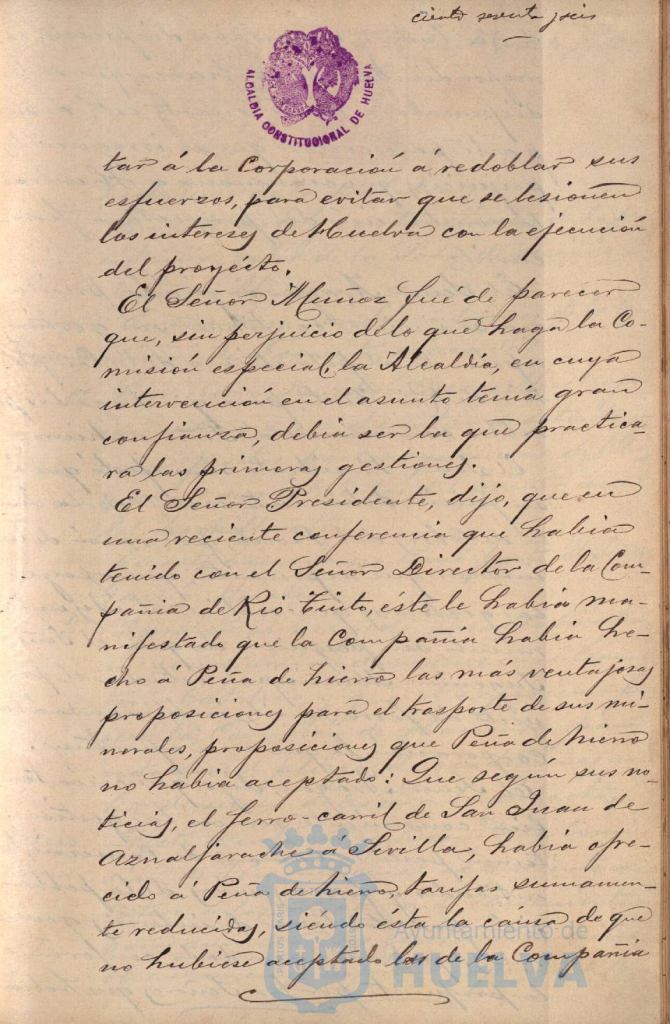 ciento sesenta y seis
ALCALDIA CONSTITUCIONAL DE HUELVA
tar á la Corporación á redoblar sus
esfuerzos, para evitar que se lesionen
los intereses de Huelva con la ejecución
del proyécto.
El Señor Muñoz fué de parecer
que, sin perjuicio de lo que haga la Co-
misión especial, la Alcaldía, en cuya
intervención en el asunto tenía gran
confianza, debia ser la que practica-
ra las primeras gestiones.
El Señor Presidente, dijo, que en
una reciente conferencia que habia
tenido con el Señor Director de la Com-
pañia de Rio-Tinto, éste le habia ma-
nifestado que la Compañía habia he-
cho á Peña de hierro las más ventajosas
proposiciones para el trasporte de sus mi-
nerales, proposiciones que Peña de hierro
no habia aceptado: Que según sus no-
ticias, el ferro-carril de San Juan de
Aznalfarache á Sevilla, habia ofre-
cido á Peña de hierro, tarifas sumamen-
te reducidas, siéndo ésta la causa de que
no hubiese aceptado las de la Compañia
Ayuntamiento de
HUELVA